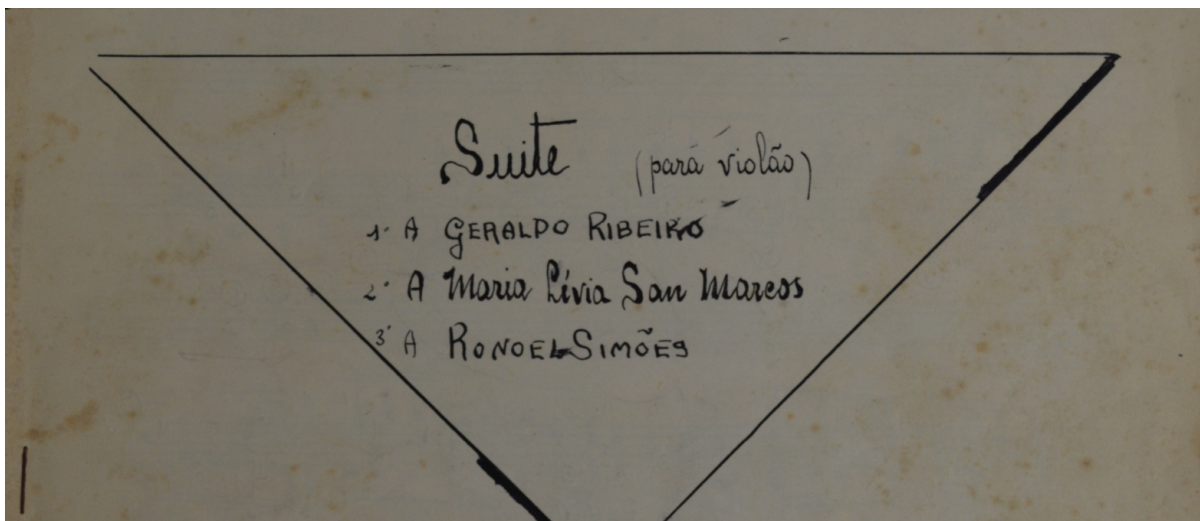 Suite (para violão)
1º A GERALDO RIBEIRO
2º A Maria Lívia San Marcos
3º A RONOEL SIMÕES